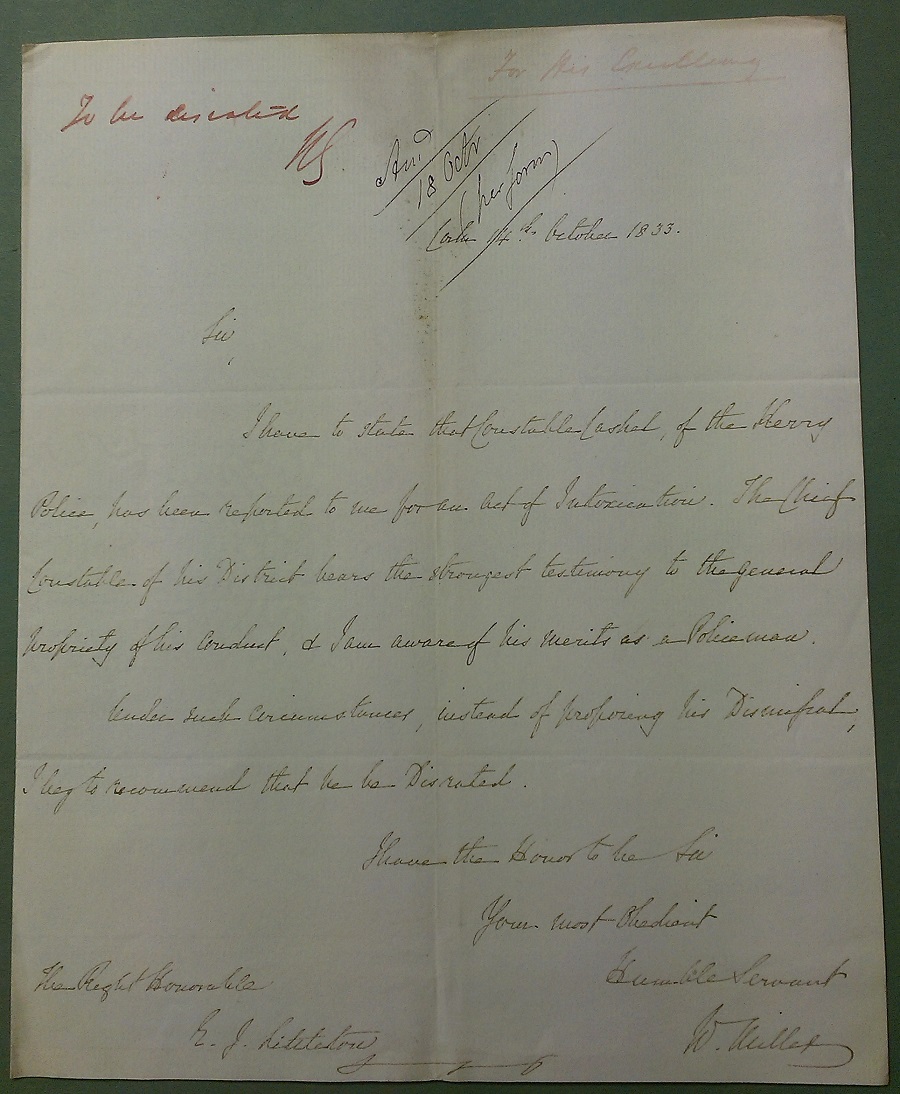 For His Excellency
To be disrated
And
18 Octr
(Cork 14th October 1833.
Sir,
I have to state that Constable Cashel, of the Kerry
Police, has been reported to me for an act of Intoxication. The Chief
Constable of his District bears the strongest testimony to the general
propriety of his conduct, & I am aware of his merits as a Policeman.
Under such circumstances, instead of proposing his Dismissal,
I beg to recommend that he be Disrated.
I have the Honor to be Sir
Your most Obedient
Humble Servant
W. Miller
The Right Honorable
E. J. Littleton